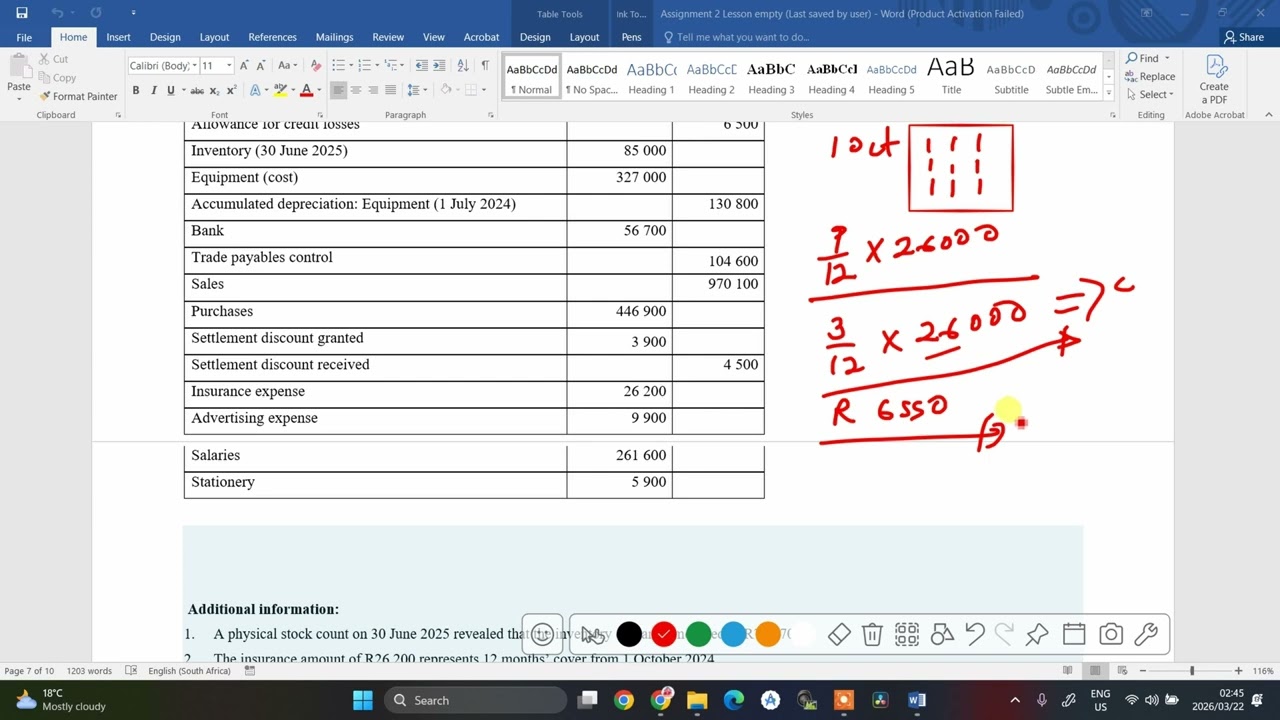 Table Tools
Ink To...
Assignment 2 Lesson empty (Last saved by user) - Word (Product Activation Failed)
File Home Insert Design Layout References Mailings Review View Acrobat Design Layout Pens Tell me what you want to do... Share
Paste
Cut
Copy
Format Painter
Clipboard
Calibri (Body) 11
Font
Paragraph
AaBbCcDd AaBbCcDd AaBbCc AaBbCcD AaBbC AaBbCcI AaBbCcDd AaB AaBbCcD AaBbCcDd
¶ Normal ¶ No Spac... Heading 1 Heading 2 Heading 3 Heading 4 Heading 5 Title Subtitle Subtle Em...
Styles
Find
Replace
Select
Editing
Create a PDF
Adobe Acrobat
Allowance for credit losses 6 500
Inventory (30 June 2025) 85 000
Equipment (cost) 327 000
Accumulated depreciation: Equipment (1 July 2024) 130 800
Bank 56 700
Trade payables control 104 600
Sales 970 100
Purchases 446 900
Settlement discount granted 3 900
Settlement discount received 4 500
Insurance expense 26 200
Advertising expense 9 900
Salaries 261 600
Stationery 5 900
1 Oct
9/12 X 26000
3/12 X 26000 =>
R 6550
Additional information:
1. A physical stock count on 30 June 2025 revealed that
2. The insurance amount of R26 200 represents 12 months' cover from 1 October 2024
Page 7 of 10 1203 words English (South Africa) 116%
18°C
Mostly cloudy
Search
ENG
US
02:45
2026/03/22